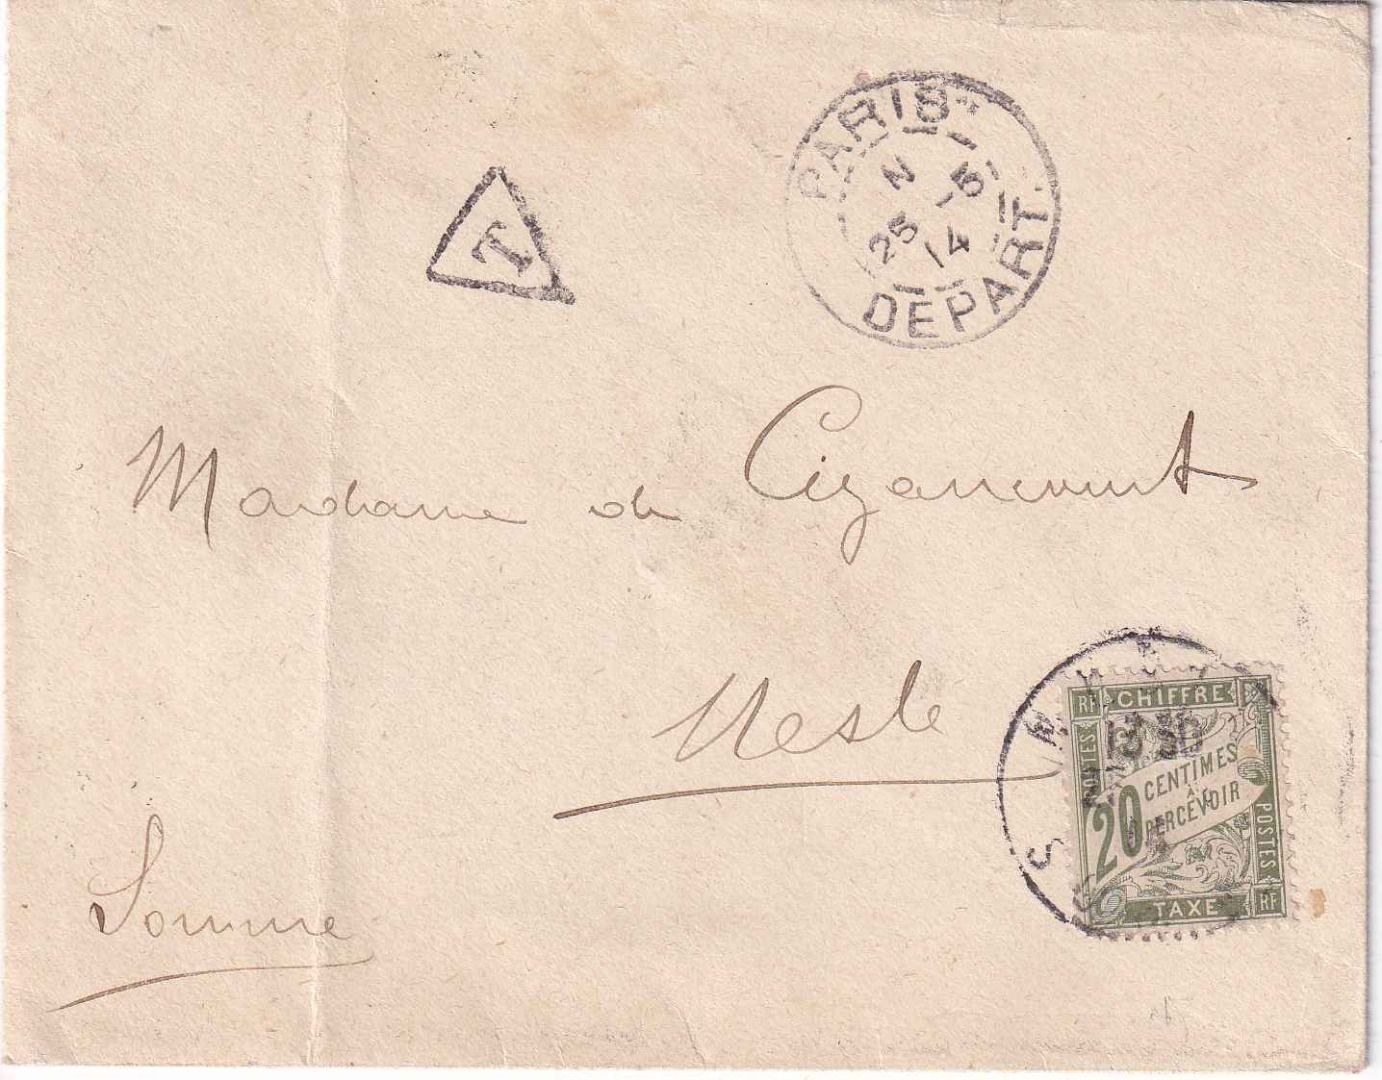 PARIS
DEPART
N -5
25 14
T
Madame de Cizancourt
Nesle
Somme
RF CHIFFRE
POSTES
20 CENTIMES
À
PERCEVOIR
POSTES
TAXE RF